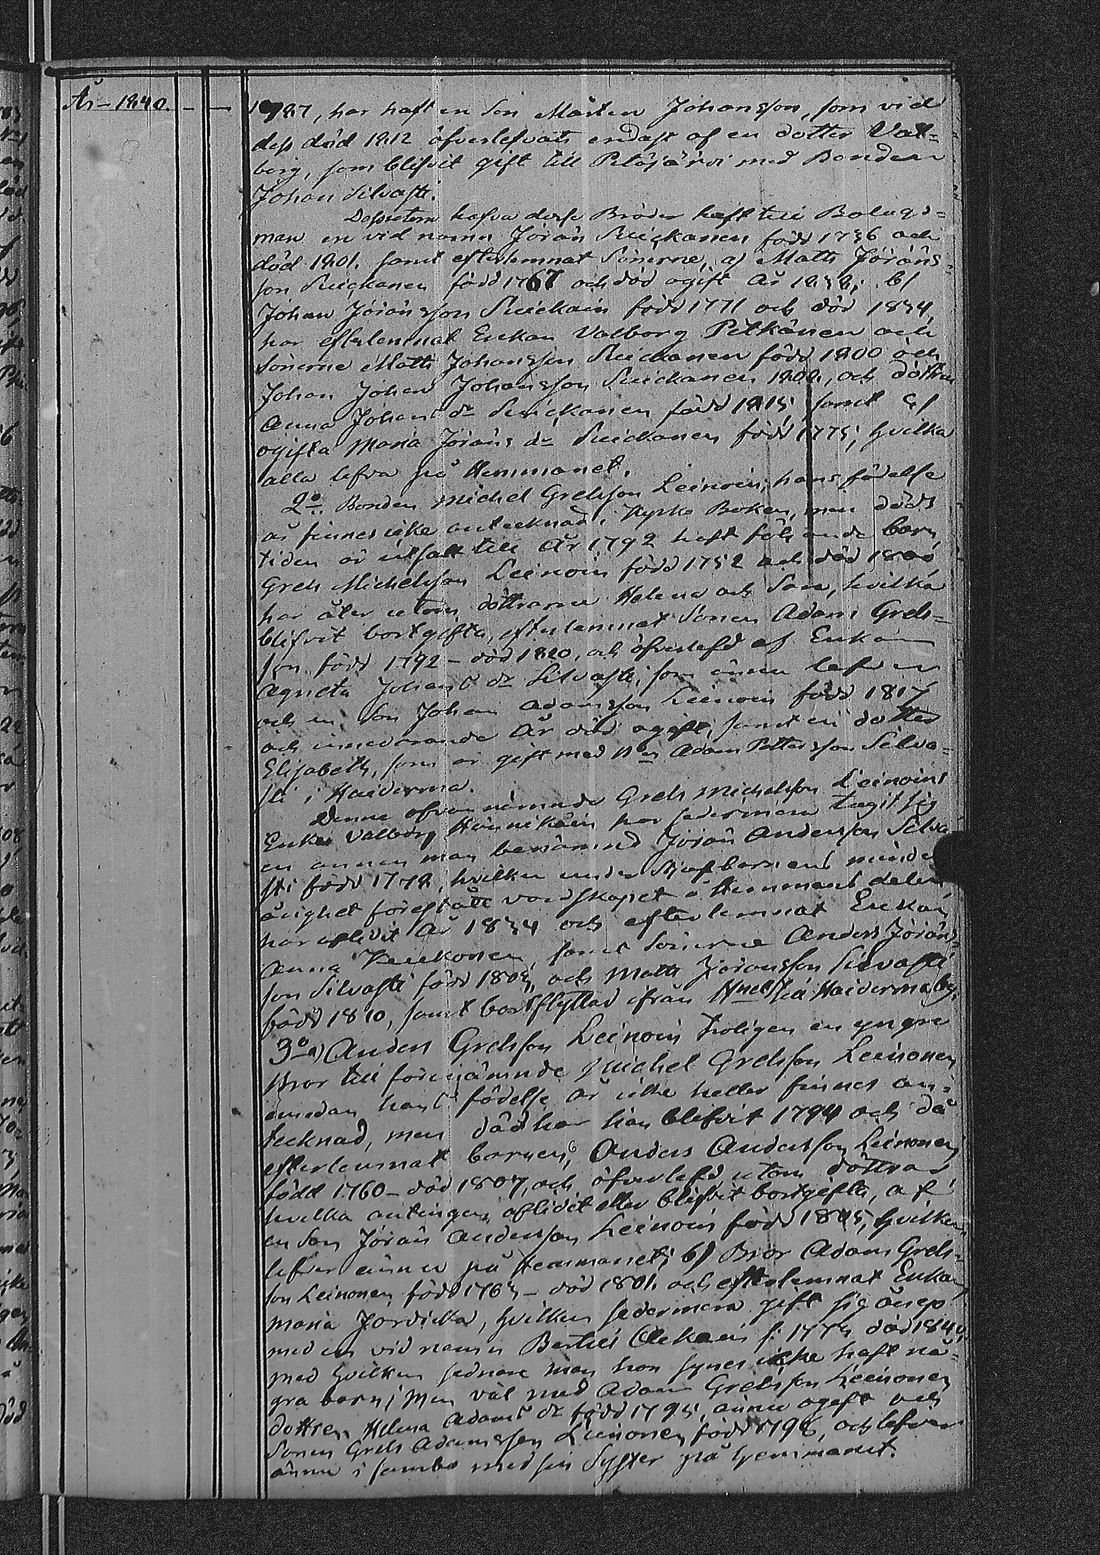 År 1840.
1787, har haft en Son Mårten Johansson, som vid
dess död 1812 öfverlefvats endast af en dotter Val-
borg, som blifvit gift till Pelåjärvi med Bonden
Johan Silvasti.
Dessutom hafva desse Bröder haft till Bolags-
man en vid namn Jöran Suickanen född 1736 och
död 1801. samt efterlemnat Sönerne, a) Matts Jörans-
son Suickanen född 1767 och död ogift År 1838; b/
Johan Jöransson Suickain född 1771 och död 1834,
har efterlemnat Enkan Valborg Pitkänen och
Sönerne Matts Johansson Suickanen född 1800 och
Johan Johan Johansson Suickanen 1808, och dottren
Anna Johans dr Suickanen född 1815; samt c/
ogifta Maria Jörans dr Suickanen född 1775; hvilka
alla lefva på Hemmanet.
2o. Bonden Michel Grelsson Leinoin, hans födelse
år finnes icke antecknad i Kyrko Boken, men döds
tiden är utsatt till År 1792 haft följande barn
Grels Michelsson Leinoin född 1752 och död 1800
har åter utom döttrarne Helena och , hvilka
blifvit bortgifta, efterlemnat Sonen Adam Grels-
son född 1792 - död 1820, och öfverlefd af Enkan
Agneta Johans dr Silvasti, som ännu lefver
och en Son Johan Adamsson Leinoin född 1817
och innevarande År död ogift, samt en dotter
Elisabeth, som är gift med Bn Adam Pettersson Silva-
sti i Haiderma.
Denne ofvannämnde Grels Michelsson Leinoins
Enka Valborg Hännikäin har sedermera tagit sig
en annan man benämnd Jöran Andersson Silva-
sti född 1772, hvilken under Stjufbarnens minder-
årighet förestått vårdskapet å Hemmans delen
har aflidit År 1834 och efterlemnat Enkan
Anna , samt Sönerne Anders Jörans-
son Silvasti född 1805, och Matts Jöransson Silvasti
född 1810, samt bortflyttad ifrån Hmet till Haiderma by.
3o a) Anders Grelsson Leinoin troligen en yngre
Bror till förenämnde Michel Grelsson Leinonen
emedan hans födelse år icke heller finnes an-
tecknad, men död har han blifvit 1794 och då
efterlemnat barnen, Anders Andersson Leinonen
född 1760 - död 1807, och öfverlefd utom döttrar
hvilka antingen aflidit eller blifvit bortgifta, af
en Son Jöran Andersson Leinoin född 1805, hvilken
lefver ännu på hemmanet; b) Bror Adam Grels-
son Leinonen född 1765 - död 1801. och efterlemnat Enkan
Maria Jordicka, hvilken sedermera gift sig ånyo
med en vid namn Bertill f. 1774 död 1840,
med hvilken sednare man hon synes icke haft nå-
gra barn; Men väl med Adam Grelsson Leinonen
dottren Helena Adams dr född 1795; ännu ogift och
Sonen Grels Adamsson Leinonen född 1798, och lefver
ännu i sambo med sin Syster på hemmanet.